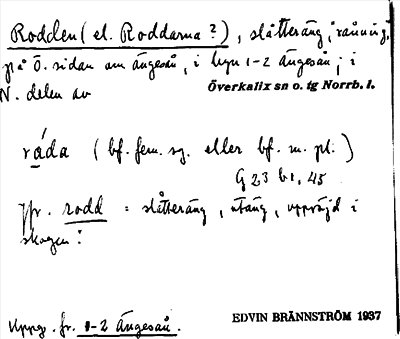 Rodden (el. Roddarna?), slåtteräng, 'rånning',
på Ö. sidan om Ängesån, i byn 1-2 Ängesån; i
N. delen av Överkalix sn o. tg Norrb. l.
råda ( bf. fem. sg. eller bf. m. pl. )
G 23 b1, 45
Jfr. rodd = slåtteräng, utäng, uppröjd i
skogen:
Uppg. fr. 1-2 Ängesån.
EDVIN BRÄNNSTRÖM 1937